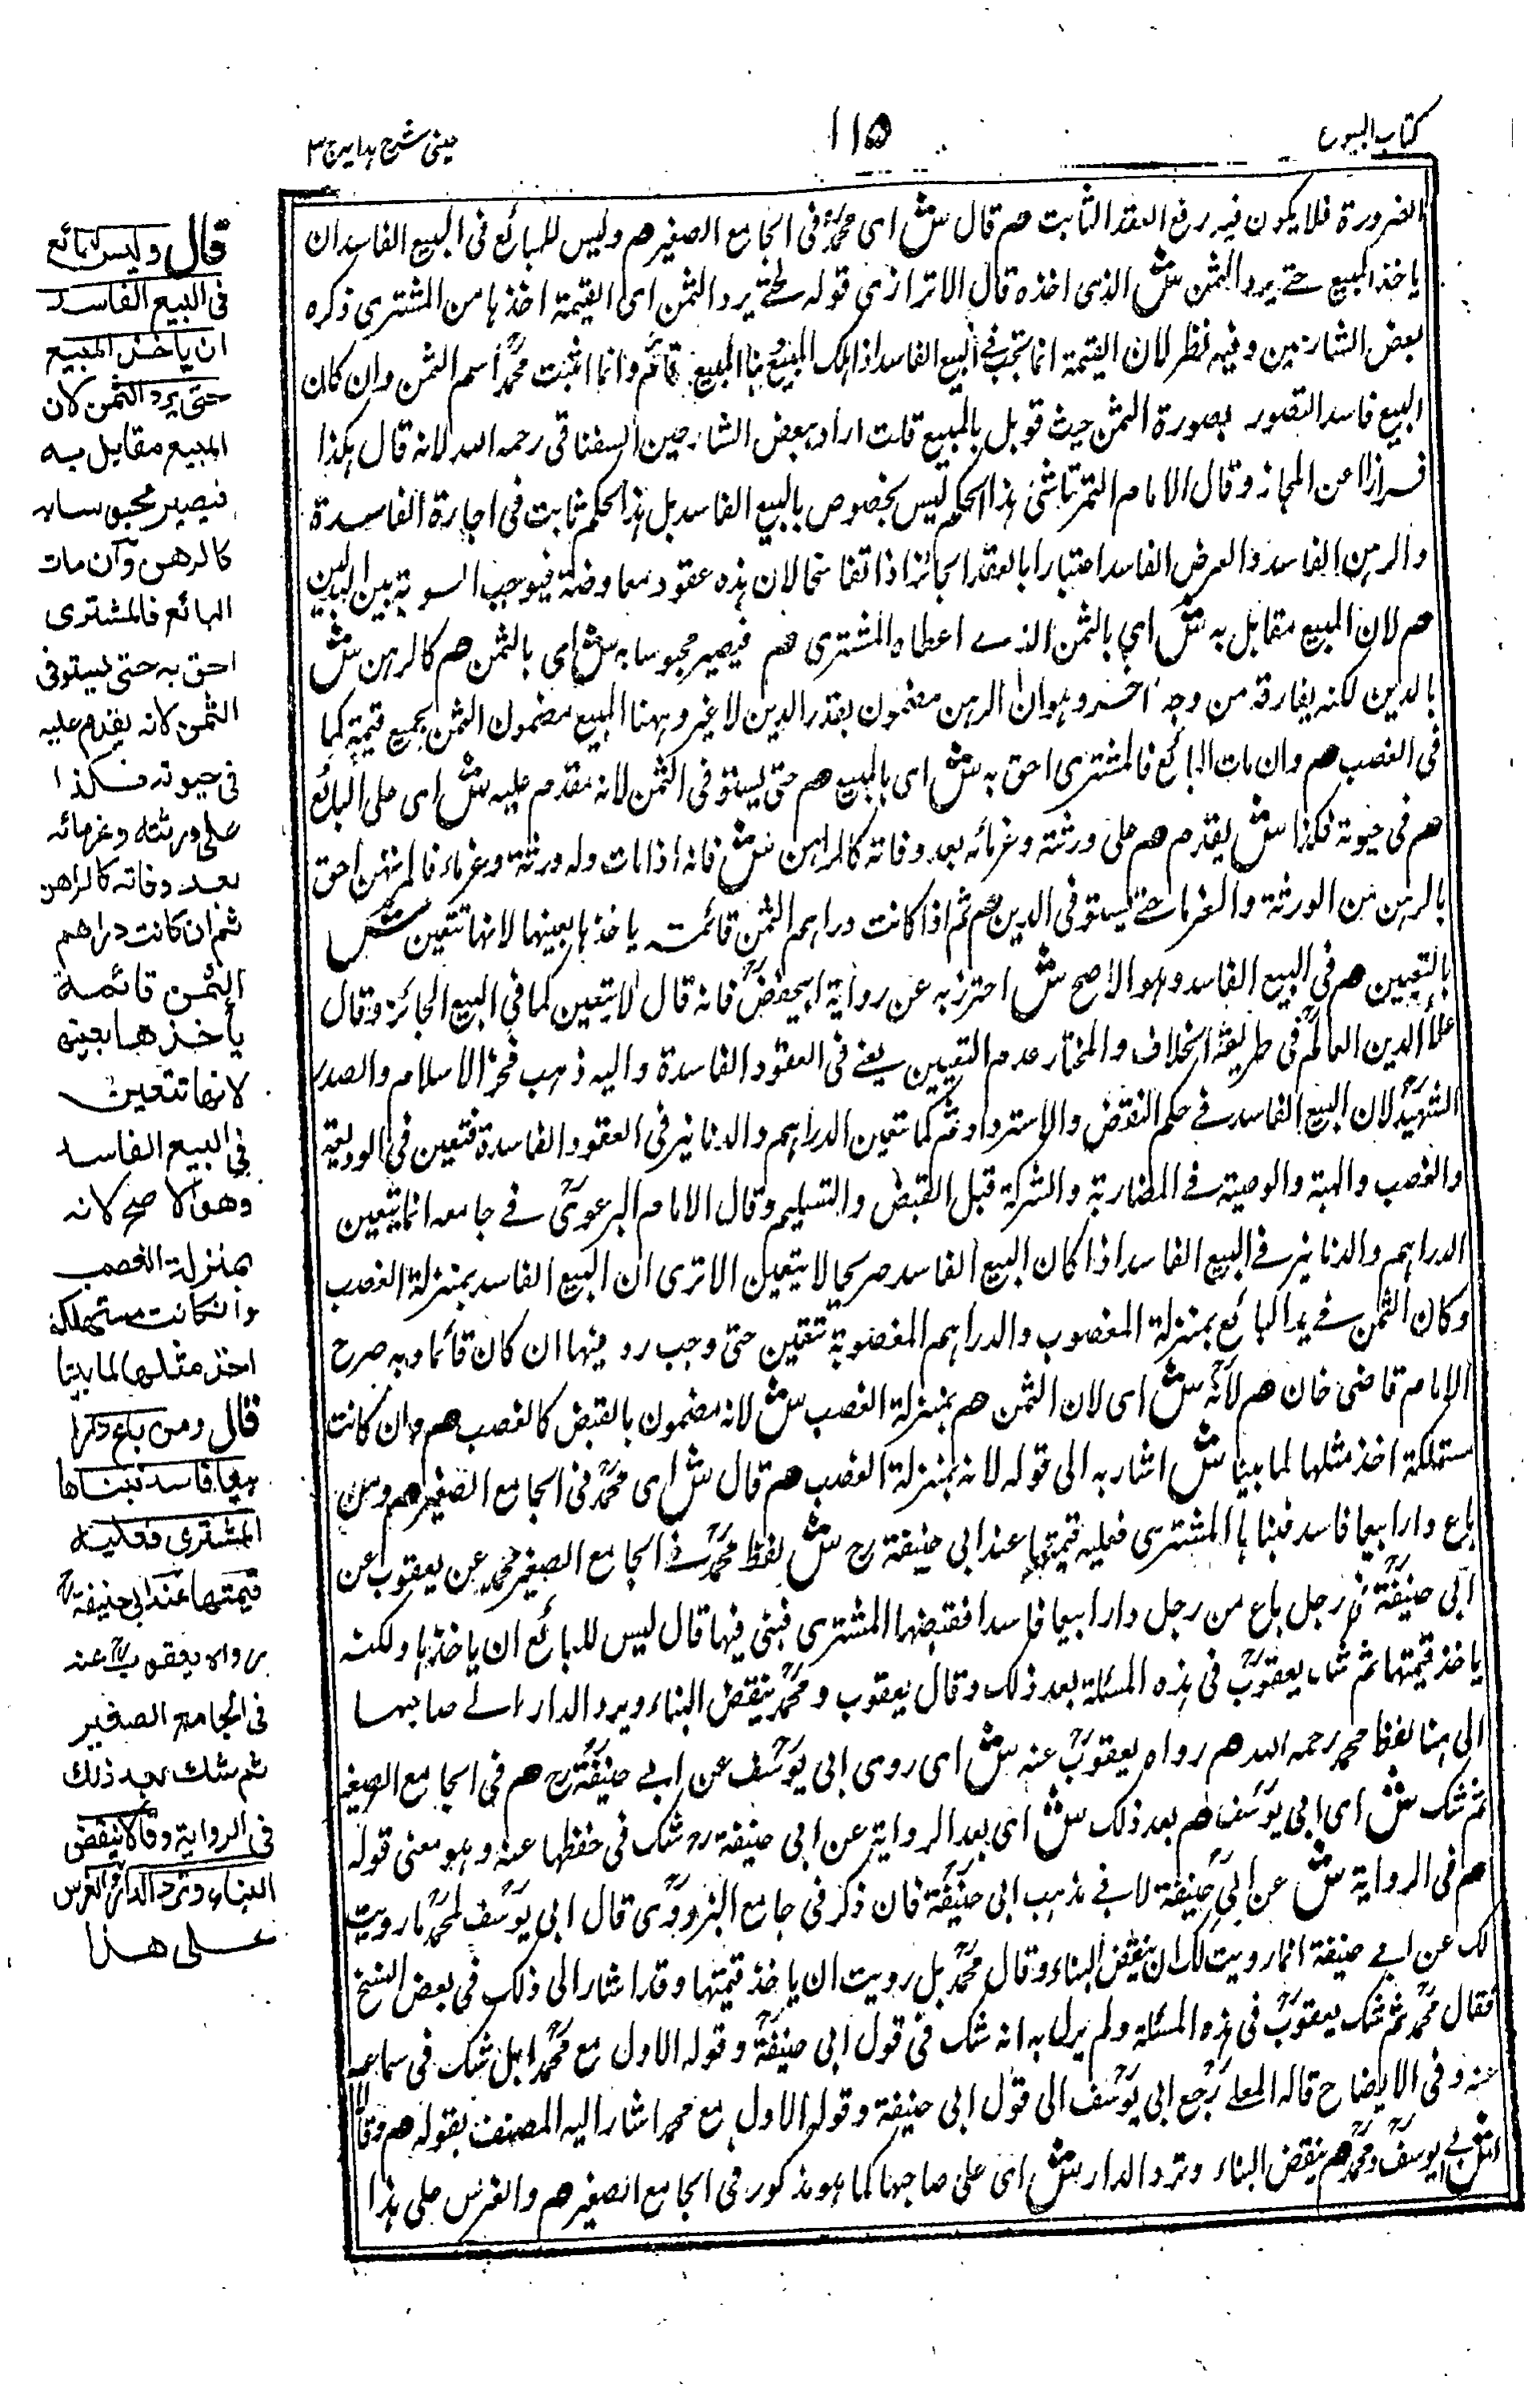 كتاب البيوع
١١٥
عینی شرح ہدایہ ج ٣
الضرورة فلا يكون فيه رفع العقد الثابت هم قال ش اى محمدؒ فى الجامع الصغير هم وليس للبائع فى البيع الفاسد ان
ياخذ المبيع حتے يرد الثمن ش الذى اخذه قال الاترازى قوله حتے يرد الثمن اى القيمة اخذها من المشترى ذكره
بعض الشارحين وفيه نظر لان القيمة انما تجب فے البيع الفاسد اذا هلك المبيع وهنا المبيع قائم وانما اثبت محمدؒ اسم الثمن وان كان
البيع فاسد التصور بصورة الثمن حيث قوبل بالمبيع قلت اراد ببعض الشارحين السغناقى رحمه الله لانه قال هكذا
فرارا عن المجاز وقال الامام التمرتاشى هذا الحكم ليس بخصوص بالبيع الفاسد بل هذا الحكم ثابت فى اجارة الفاسدة
والرهن الفاسد والعرض الفاسد اعتبارا بالعقد الجائز اذا تفاسخا لان هذه عقود معاوضة فيوجب السوية بين البدلين
هم لان المبيع مقابل به ش اى بالثمن الذے اعطاه المشترى هم فيصير محبوسا به ش اى بالثمن هم كالرهن ش
بالدين لكنه يفارقه من وجه اخر وهو ان الرهن مضمون بقدر الدين لا غير وههنا المبيع مضمون الثمن بجميع قيمته كما
فى الغصب هم وان مات البائع فالمشترى احق به ش اى بالمبيع هم حتى يستوفى الثمن لانه مقدم عليه ش اى على البائع
هم فى حيوته فكذا ش يقدم هم على ورثته وغرمائه بعد وفاته كالراهن ش فانه اذا مات وله ورثة وغرماء فالمرتهن احق
بالرهن من الورثة والغرماء حتے يستوفى الدين هم ثم اذا كانت دراهم الثمن قائمة ياخذها بعينها لانها تتعين ش
بالتعيين هم فى البيع الفاسد وهو الاصح ش احترز به عن رواية ابى حفصؒ فانه قال لا يتعين كما فى البيع الجائز وقال
علاء الدين العالمؒ فى طريقة الخلاف والمختار عدم التعيين يعنے فى العقود الفاسدة واليه ذهب فخر الاسلام والصدر
الشهيدؒ لان البيع الفاسد فے حكم النقض والاسترداد ثم كما تتعين الدراهم والدنانير فى العقود الفاسدة فتعين فى الوديعة
والغصب والهبة والوصية فے المضاربة والشركة قبل القبض والتسليم وقال الامام البرعوىؒ فے جامعه انما يتعين
الدراهم والدنانير فے البيع الفاسد اذا كان البيع الفاسد صريحا لا يتعين الا ترى ان البيع الفاسد بمنزلة الغصب
وكان الثمن فے يد البائع بمنزلة المغصوب والدراهم المغصوبة تتعين حتى وجب رد عينها ان كان قائما وبه صرح
الامام قاضى خان هم لانه ش اى لان الثمن هم بمنزلة الغصب ش لانه مضمون بالقبض كالغصب هم وان كانت
مستهلكة اخذ مثلها لما بينا ش اشار به الى قوله لانه بمنزلة الغصب هم قال ش اى محمدؒ فى الجامع الصغير هم ومن
باع دارا بيعا فاسد فبناها المشترى فعليه قيمتها عند ابى حنيفة رح ش لفظ محمدؒ فے الجامع الصغير محمد عن يعقوب عن
ابى حنيفةؒ فى رجل باع من رجل دارا بيعا فاسدا فقبضها المشترى فبنى فيها قال ليس للبائع ان ياخذها ولكنه
ياخذ قيمتها ثم شك يعقوبؒ فى هذه المسئلة بعد ذلك وقال يعقوب ومحمدؒ ينقض البناء ويرد الدار الے صاحبها
الى هنا لفظ محمد رحمه الله هم رواه يعقوبؒ عنه ش اى روى ابى يوسفؒ عن ابى حنيفةؒ رح هم فى الجامع الصغير
ثم شك ش اى ابى يوسفؒ هم بعد ذلك ش اى بعد الرواية عن ابى حنيفة رح شك فى حفظها عنه وهو معنى قوله
هم فى الرواية ش عن ابى حنيفة لا فے مذهب ابى حنيفةؒ فان ذكر فى جامع البزدوىؒ قال ابى يوسفؒ لمحمدؒ ما رويت
لك عن ابے حنيفة انما رويت لك ان ينقض البناء وقال محمدؒ بل رويت ان ياخذ قيمتها وقد اشار الى ذلك فى بعض النسخ
فقال محمدؒ ثم شك يعقوبؒ فى هذه المسئلة ولم يرد به انه شك فى قول ابى حنيفةؒ وقوله الاول مع محمدؒ بل شك فى سماعه
عنه وفى الايضاح قاله المعلے رجع ابى يوسفؒ الى قول ابى حنيفة وقوله الاول مع محمد اشار اليه المصنف بقوله هم وقالا
ش ابى يوسفؒ ومحمدؒ هم ينقض البناء وترد الدار ش اى على صاحبها كما هو مذكور فى الجامع الصغير هم والغرس على هذا
قال وليس للبائع
فى البيع الفاسد
ان ياخذ المبيع
حتى يرد الثمن لان
المبيع مقابل به
فيصير محبوسا به
كالرهن وان مات
البائع فالمشترى
احق به حتى يستوفى
الثمن لانه يقدم عليه
فى حيوته فكذا
على ورثته وغرمائه
بعد وفاته كالراهن
ثم ان كانت دراهم
الثمن قائمة
يأخذها بعينها
لانها تتعين
فى البيع الفاسد
وهو الاصح لانه
بمنزلة الغصب
وان كانت مستهلكة
اخذ مثلها لما بينا
قال ومن باع دارا
بيعا فاسد فبناها
المشترى فعليه
قيمتها عند ابى حنيفةؒ
رواه يعقوبؒ عنه
فى الجامع الصغير
ثم شك بعد ذلك
فى الرواية وقالا ينقض
البناء وترد الدار والغرس
على هذا